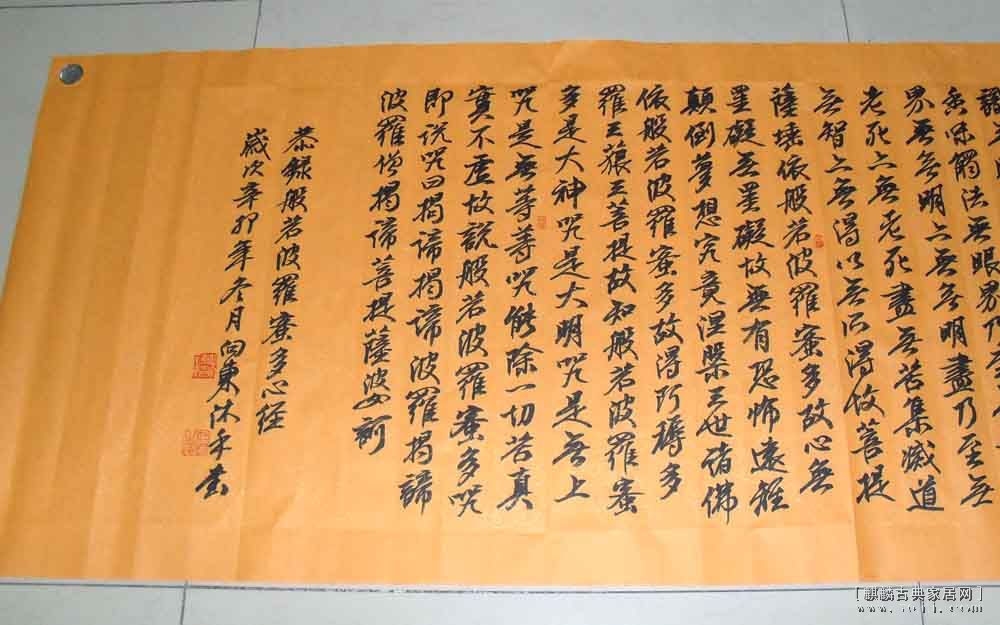 香味觸法無眼界乃至
界無無明亦無無明盡乃至無
老死亦無老死盡無苦集滅道
無智亦無得以無所得故菩提
薩埵依般若波羅蜜多故心無
罣礙無罣礙故無有恐怖遠離
顛倒夢想究竟涅槃三世諸佛
依般若波羅蜜多故得阿耨多
羅三藐三菩提故知般若波羅蜜
多是大神咒是大明咒是無上
咒是無等等咒能除一切苦真
實不虛故說般若波羅蜜多咒
即說咒曰揭諦揭諦波羅揭諦
波羅僧揭諦菩提薩婆訶
恭錄般若波羅蜜多心經
歲次辛卯年冬月向東沐手書
[麒麟古典家居网]